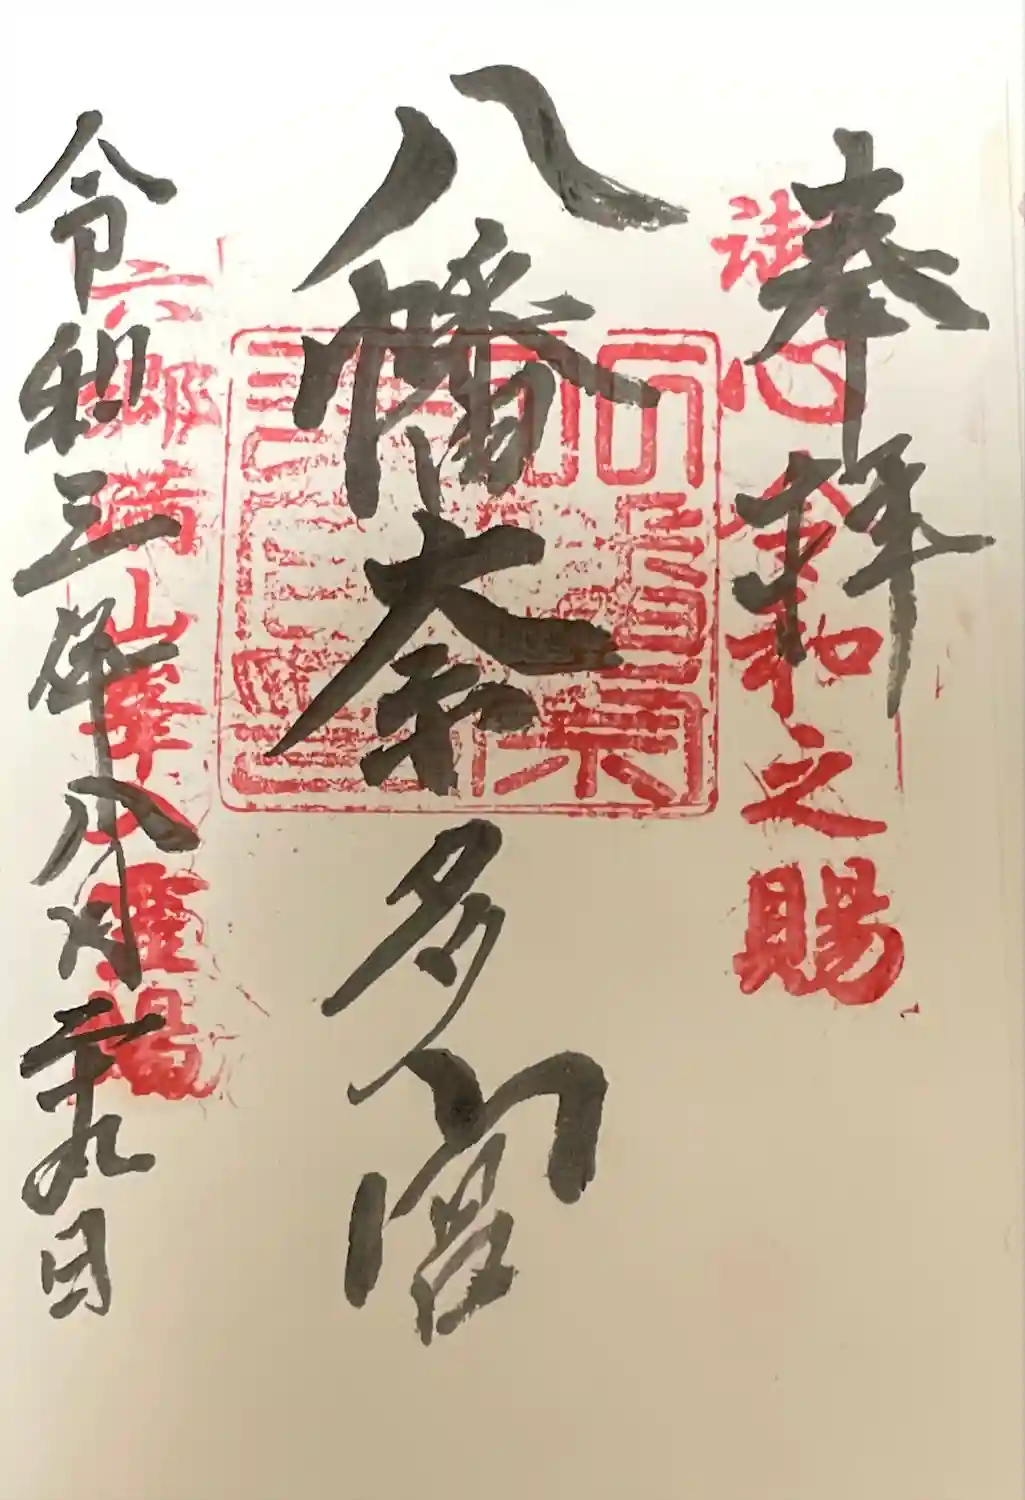 奉拝
御心令和之賜
八幡奈多宮
六郷満山峯入霊場
令和三年八月二十九日